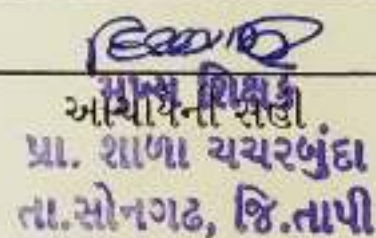 મુખ્ય શિક્ષક
આચાર્યની સહી
પ્રા. શાળા ચચરબુંદા
તા.સોનગઢ, જિ.તાપી